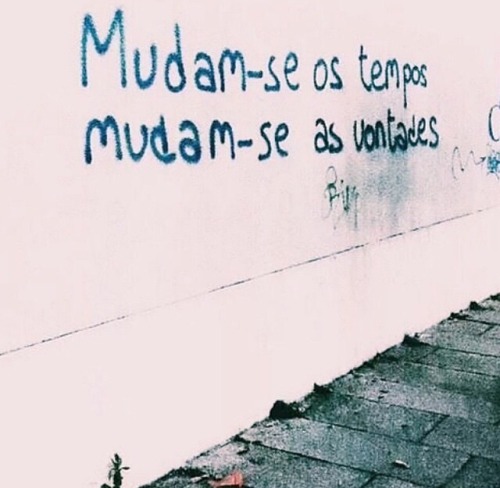 Mudam-se os tempos
mudam-se as vontades